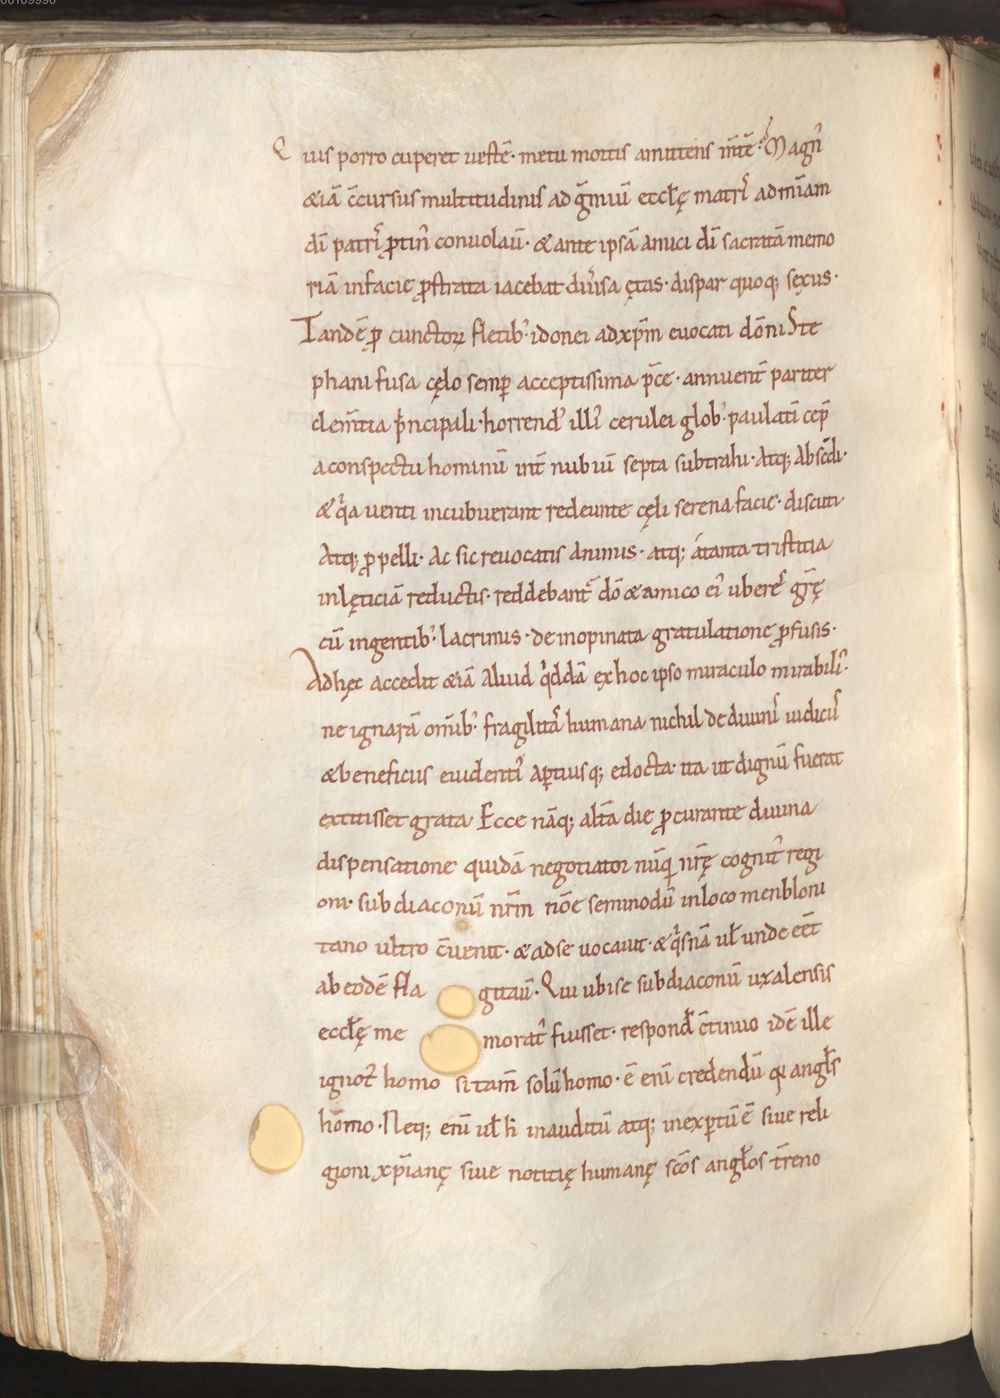 Quis porro cuperet uestē· metu mortis amittens m̄tē? Magn᷒
&iā c̄cursus multitudinis ad ḡmiū eccl̄ę matri᷒ ad mīam
dī patri᷒ ꝓtin᷒ conuolaū· & ante ipsā amici dī sacratā memo
riā infacie ꝓstrata iacebat diu᷒sa ętas· dispar quoq; sexus·
Tandē ꝑ cunctoꝝ fletib᷒· idonei adxp̄m euocati dōni Ste
phani fusa cęlo semꝑ acceptissima p̄ce· annuent᷒ pariter
clem̄tia p̍ncipali· horrend᷒ illi᷒ cerulei glob᷒· paulatī cep̄
aconspectu hominū int᷒ nubiū septa subtrahi· Atq; absc̄di·
& q̍a uenti incubuerant redeunte cęli serena facie· discuti
Atq; ꝓpelli· Ac sic reuocatis animis· atq; átanta tristitia
inlęticiā reductis· reddebant᷒ dō & amico ei᷒ ubere᷒ gr̄ę
cū ingentib᷒· lacrimis· de inopinata gratulatione ꝓfusis·
Adhęc accedit &iā Aliud q̍ddā exhoc ipso miraculo mirabili᷒·
ne ignarā om̄ib᷒· fragilita᷒ humana nichil de diuini᷒ iudicii᷒
& beneficiis euidenti᷒ aꝑtiusq; edocta· ita ut dignū fuerat
extitisset grata· Ecce nāq; alt̄a die ꝓcurante diuina
dispensatione quidā negotiator nūq̍ nr̄ę cognit᷒ regi
oni· subdiaconū nr̄m nōe seminodū inloco menbloni
tano ultro c̄uenit· & adse uocauit· & q̍snā ul̄ unde eēt
ab eodē fla gitaū· Qui ubi se subdiaconū uxalensis
eccl̄ę me morat᷒ fuisset· respond̄ c̄tinuo idē ille
ignot᷒ homo si tam̄ solū homo· ē enī credendū q̍ angl̄s
hōmo· Neq; enī ul̄ h̄ inauditū atq; inexꝑtū ē siue reli
gioni xp̄ianę siue notitię humanę sc̄os angl̄os t̄reno